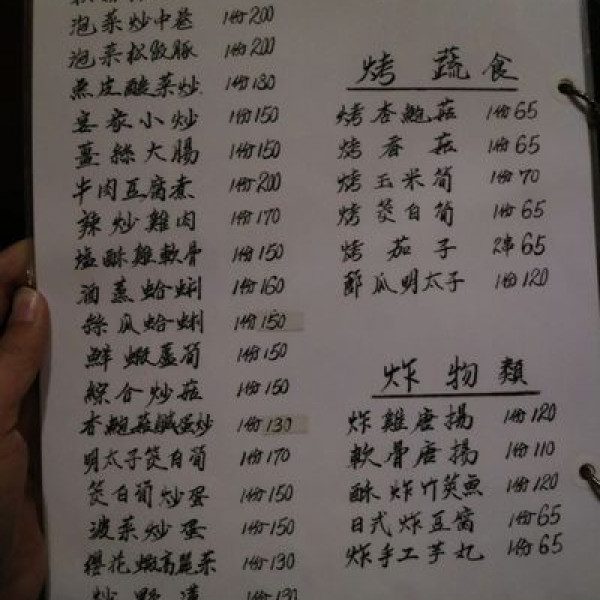 泡菜炒中卷 1份200
泡菜松阪豚 1份200
魚皮酸菜炒 1份130
客家小炒 1份150
薑絲大腸 1份150
牛肉豆腐煮 1份200
辣炒雞肉 1份170
塩酥雞軟骨 1份150
酒蒸蛤蜊 1份160
絲瓜蛤蜊 1份150
鮮蝦蘆筍 1份150
綜合炒菇 1份150
杏鮑菇鹹蛋炒 1份130
明太子筊白筍 1份170
筊白筍炒蛋 1份150
波菜炒蛋 1份150
櫻花蝦高麗菜 1份130
炒野 1份130
烤蔬食
烤杏鮑菇 1份65
烤香菇 1份65
烤玉米筍 1份70
烤筊白筍 1份65
烤茄子 2串65
節瓜明太子 1份120
炸物類
炸雞唐揚 1份120
軟骨唐揚 1份110
酥炸竹筴魚 1份120
日式炸豆腐 1份65
炸手工芋丸 1份65